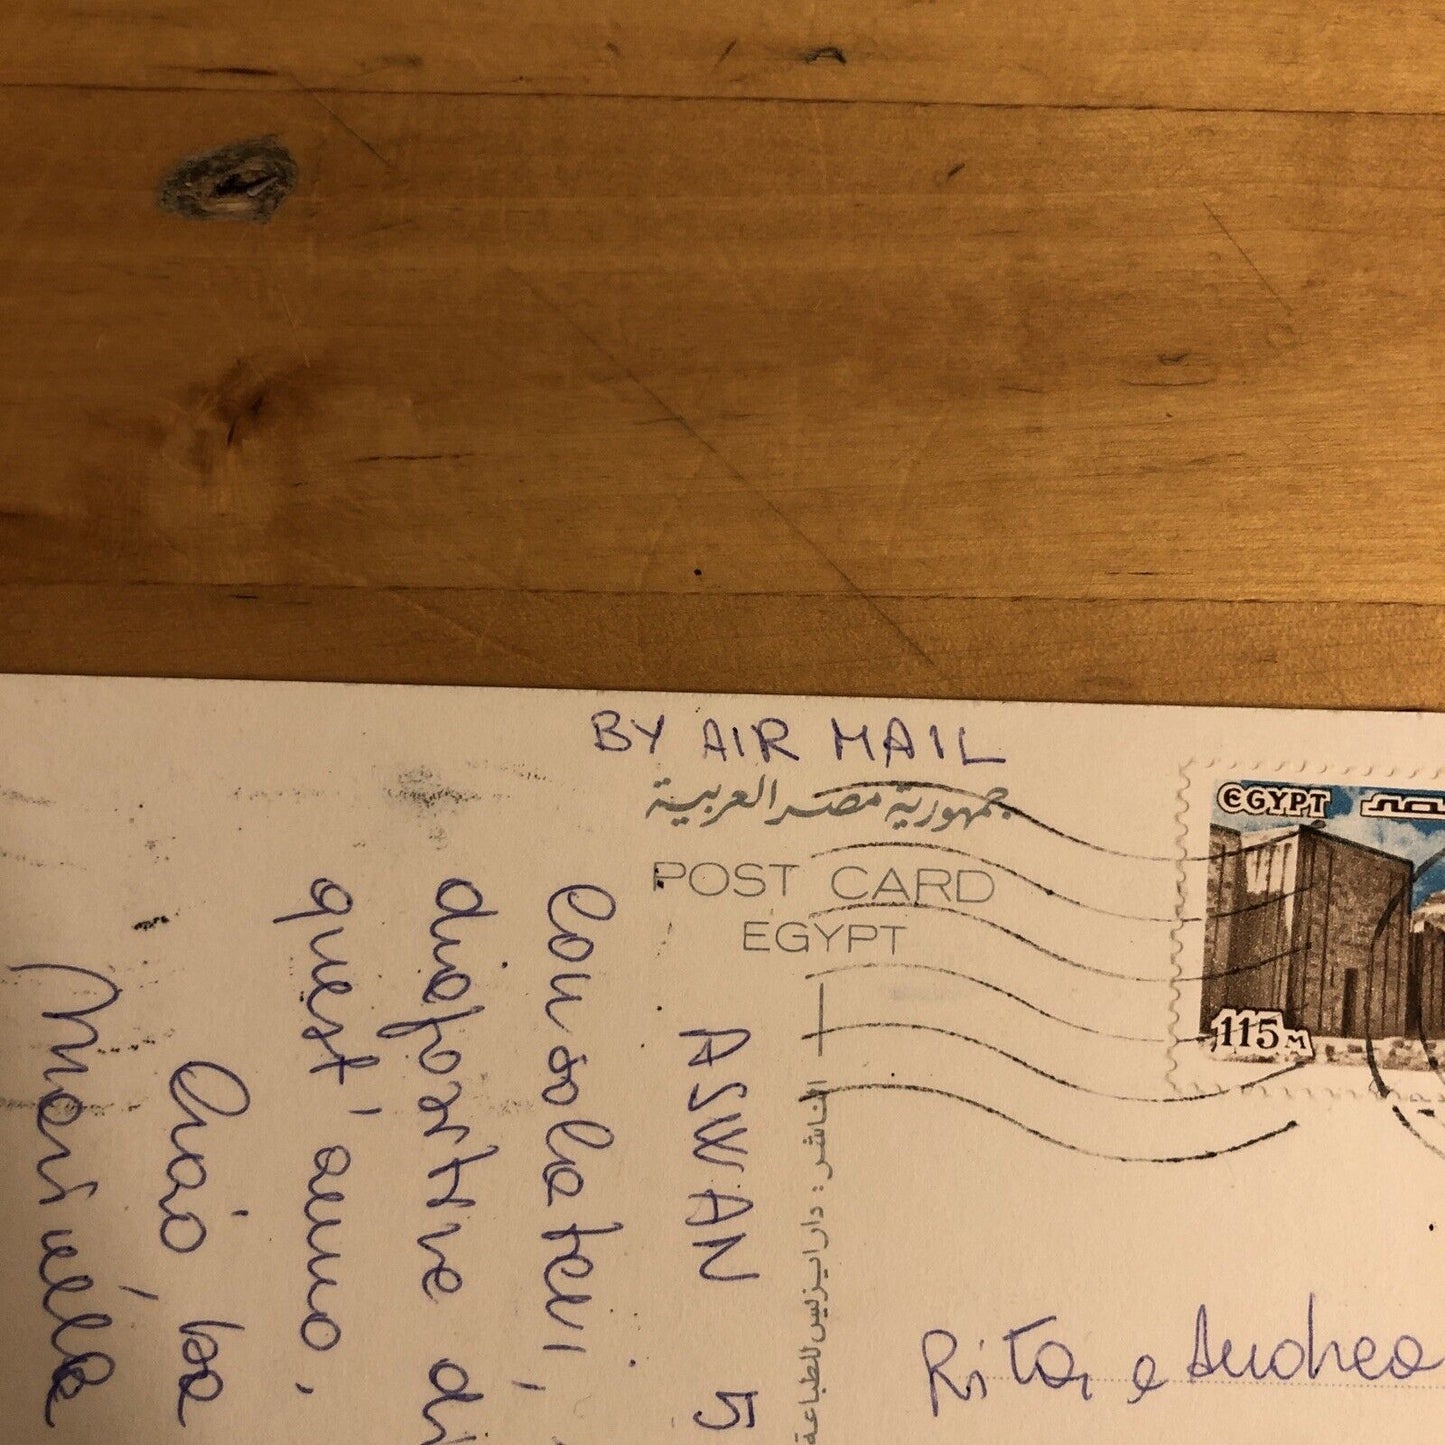 BY AIR MAIL
جمهورية مصر العربية
POST CARD
EGYPT
EGYPT مصر
115 M
ASWAN 5
Consolatevi,
diapositive di
quest'anno.
Ciao, ba
Mariella
الناشر : دار ايزيس للطباعة
Rita e Andrea